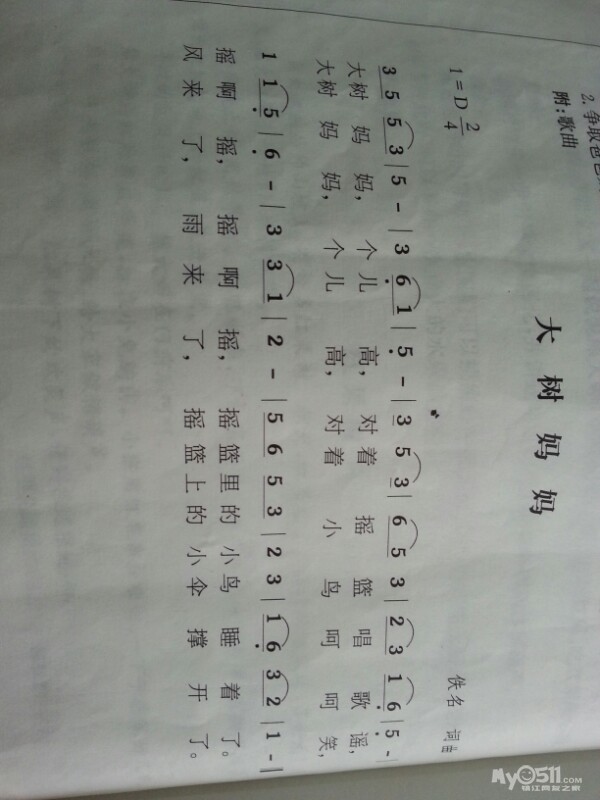 2. 争取
附：歌曲
大树妈妈
1 = D 2/4
佚名 词曲
3 5 5 3 | 5 - | 3 6 1 | 5 - | 3 5 3 | 6 5 3 | 2 3 1 6 | 5 - |
大树 妈 妈， 个儿 高， 对着 摇 篮 唱 歌 谣，
大树 妈 妈， 个儿 高， 对着 小 鸟 呵 呵 笑，
1 1 5 | 6 - | 3 3 1 | 2 - | 5 6 5 3 | 2 3 1 6 | 3 2 | 1 - |
摇 啊 摇， 摇 啊 摇， 摇篮里的 小鸟 睡 着 了。
风 来 了， 雨 来 了， 摇篮上的 小伞 撑 开 了。
My0511.com
镇江网友之家